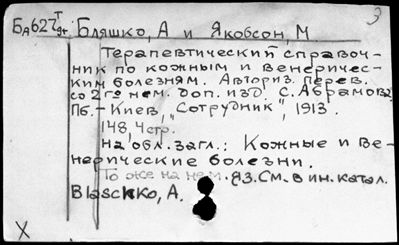 Ба627 т 9+ Бляшко, А и Якобсон, М
Терапевтический справоч-
ник по кожным и венеричес-
ким болезням. Авториз. перев.
со 2го нем. доп. изд. С. Абрамова.
Пб.-Киев, "Сотрудник", 1913.
148,4стр.
На обл. загл.: Кожные и ве-
нерические болезни.
То же на нем. яз. См. в ин. катал.
Blaschko, A.
X